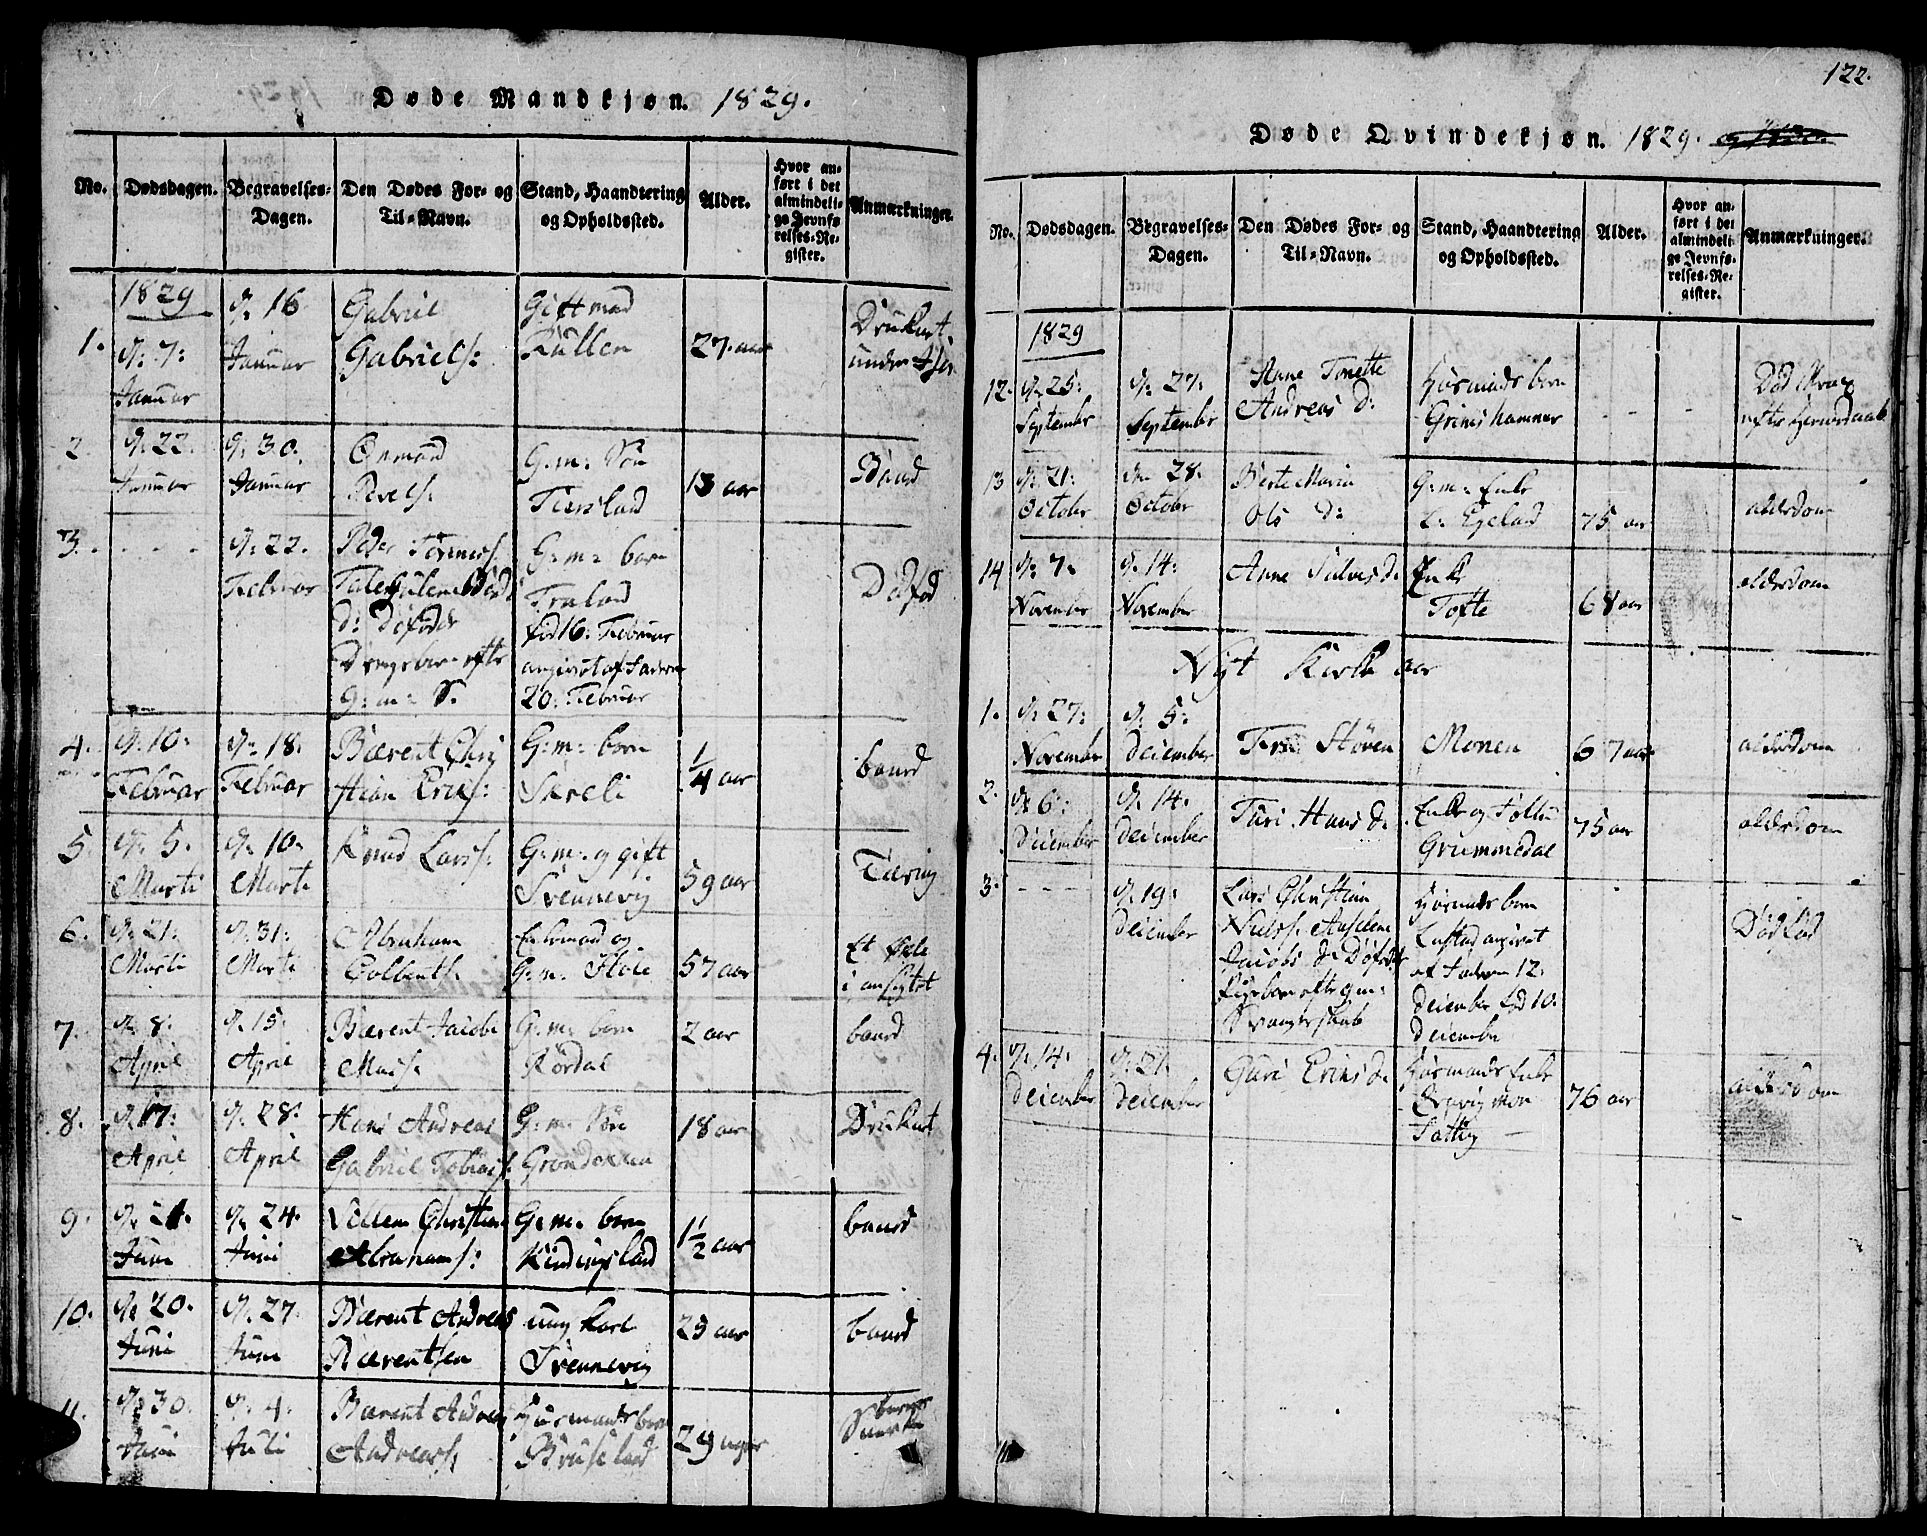 Døde Mandkjøn. 1829.
No. Dødsdagen. Begravelses-Dagen. Den Dødes For- og Til-Navn. Stand, Haandtering og Opholdssted. Alder. Hvor anført i det almindelige Jevnførelses-Register. Anmærkninger.
1829
1. d: 7: Januar
d: 16 Januar
Gabriel
Gabriels:
Gift mand
27 aar
Druknet
under Isen
2. d: 22. Januar
d: 30. Januar
G: m: Søn
13 aar
3.
d: 22. Februar
Peder
d: Døfødte
Drengebarn efter
g: m: S.
G: m: barn
fød 16: Februar
angivet af Faderen
20: Februar
Dødfød
4. d: 10: Februar
d: 18. Februar
Bærent Chri
stian Eriks:
G: m: barn
Skreli
1/4 aar
baard
5. d: 5. Marti
d: 10. Marti
Knud Lars:
G: m: og gift
Svennevig
59 aar
Tæring
6. d: 21. Marti
d: 31: Marti
Abraham
Enkemand og
G: m:
57 aar
i ansigtet
7. d: 8. April
d: 15: April
Bærent Jacob
G: m: barn
Rørdal
2 aar
baard
8. d: 17: April
d: 28: April
Hans Andreas
Gabriel Tobias:
G: m: Søn
18 aar
Druknet
9. d: 21. Juni
d: 24. Juni
Villem Christian
Abrahams:
G: m: barn
1 1/2 aar
baard
10. d: 20. Juni
d: 27. Juni
Bærent Andreas
Bærentsen
ung karl
Svennevig
25 aar
baard
11. d: 30. Juni
d: 4. Juli
Bærent Andreas
Andreas:
Huusmands barn
29 uger
122.
Døde Qvindekjøn. 1829.
No. Dødsdagen. Begravelses-Dagen. Den Dødes For- og Til-Navn. Stand, Haandtering og Opholdssted. Alder. Hvor anført i det almindelige Jevnførelses-Register. Anmærkninger.
1829
12. d: 25: September
d: 27: September
Anne Tonette
Andreas d:
Huusmands barn
Grimshammer
Død strax
efter hjemmedaab
13 d: 21: October
d: 28. October
Berte Maria
Ols d:
G: m: Enke
L: Egeland
75 aar
alderdom
14 d: 7. November
d: 14: November
Anne Salves d:
Enke
Tofte
68 aar
alderdom
Nyt Kirke aar
1. d: 27: November
d: 5: December
Støren
Monen
67 aar
alderdom
2. d: 6: December
d: 14. December
Turi Hans d:
Enke og
Grummedal
75 aar
alderdom
3.
d: 19: December
Lars Christian
Niels: Anselene
Jacobs d: Døfødte
Pigebarn efter g m:
Svangerskab
Huusmands barn
angivet
af Faderen 12:
December fød 10.
December
Dødfød
4. d: 14. December
d: 21. December
Guri Eriks d:
Huusmands Enke
Fattig
76 aar
alderdom